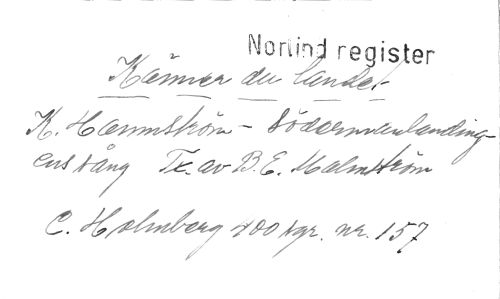 Norlind register
Känner du landet
K. Hammström - Södermanlanding-
ens sång Tx. av B. E. Malmström
C. Holmberg 400 sgr. nr. 157